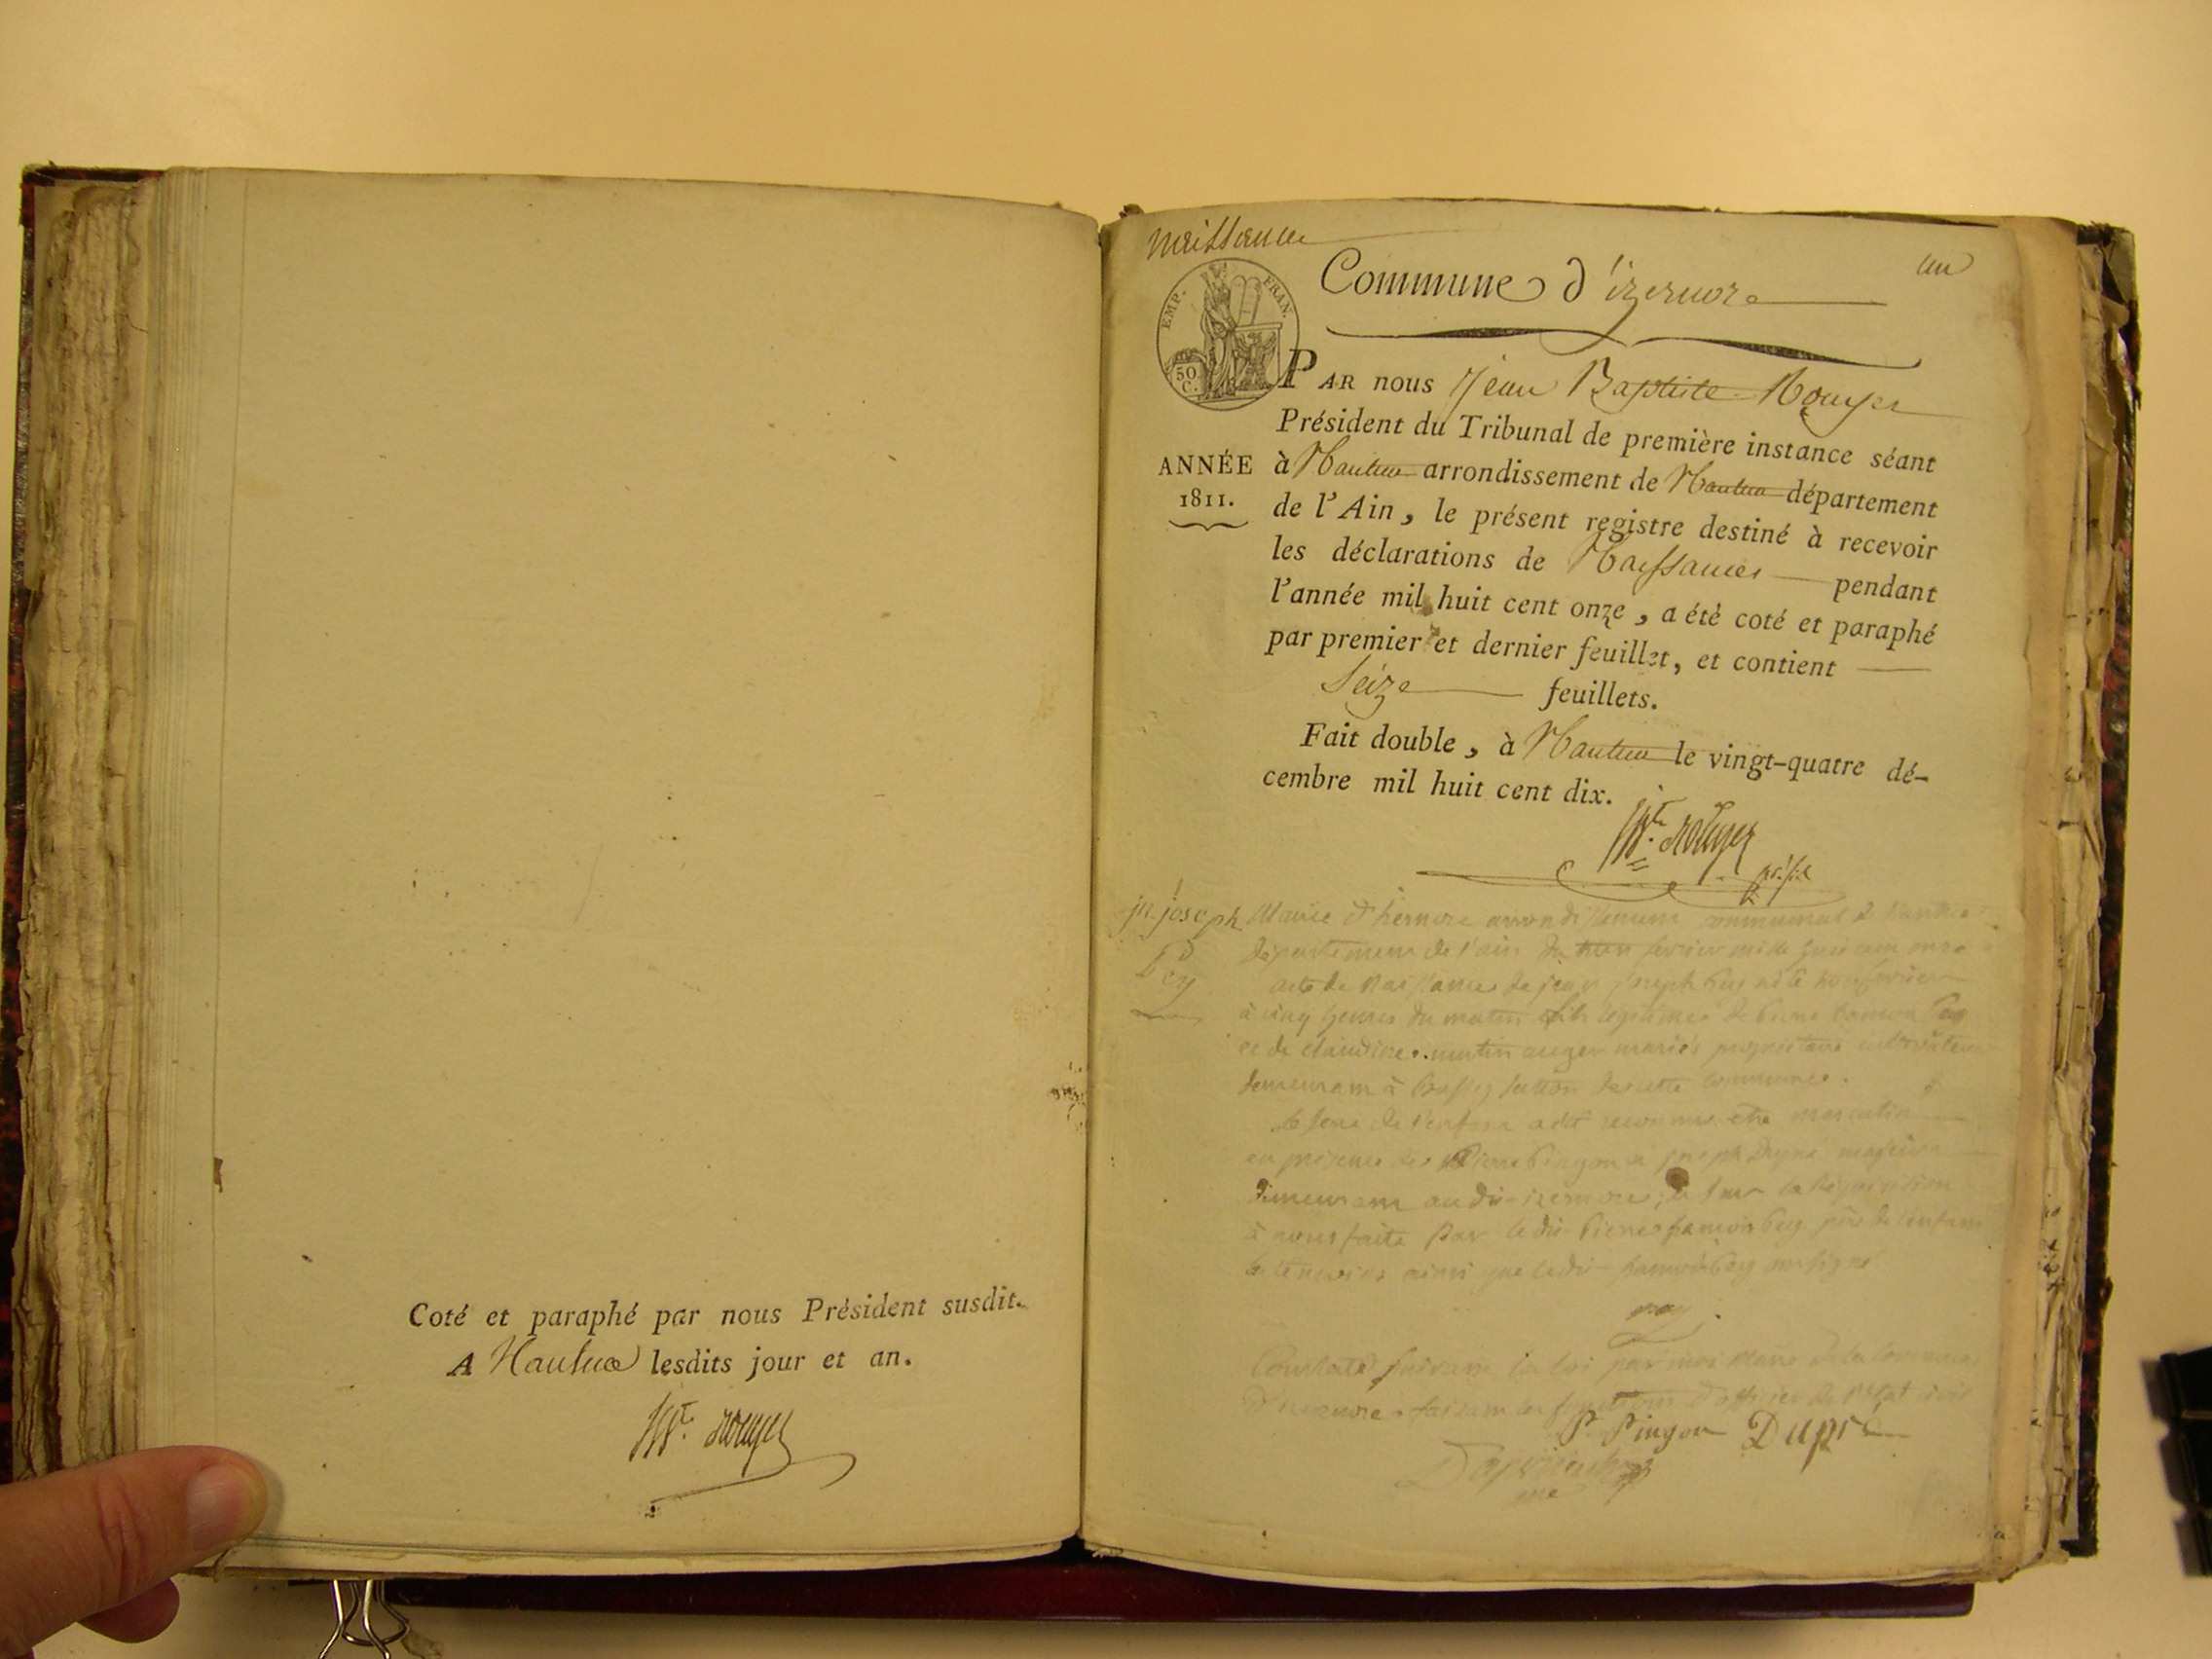 Coté et paraphé par nous Président susdit.
A Nantua lesdits jour et an.
Bte. rouyer
naissance
un
Commune d'izernore
EMP. FRAN.
50 C.
PAR nous Jean Baptiste Rouyer
Président du Tribunal de première instance séant
ANNÉE
1811.
à Nantua arrondissement de Nantua département
de l'Ain, le présent registre destiné à recevoir
les déclarations de Naissances pendant
l'année mil huit cent onze, a été coté et paraphé
par premier et dernier feuillet, et contient
Seize feuillets.
Fait double, à Nantua le vingt-quatre dé-
cembre mil huit cent dix.
Bte. rouyer
jn. joseph
Pey
Mairie d'izernore arrondissement communal de Nantua
département de l'ain du février mil huit cent onze
acte de Naissance de jean joseph né le
à cinq heures du matin fils légitime de
et de claudine mariés propriétaire cultivateur
demeurant à de cette commune.
le sexe de l'enfant a été reconnu etre masculin
en présence de Pierre Pingon et joseph Dupré majeurs
demeurant au dit izernore, et sur la réquisition
à nous faite par le dit pierre françois pey père de l'enfant
ainsi que le dit françois pey ont signé
pey
Constaté suivant la loi par moi Maire de la commune
d'izernore faisant les fonctions d'officier de l'état civil
P. Pingon Dupré